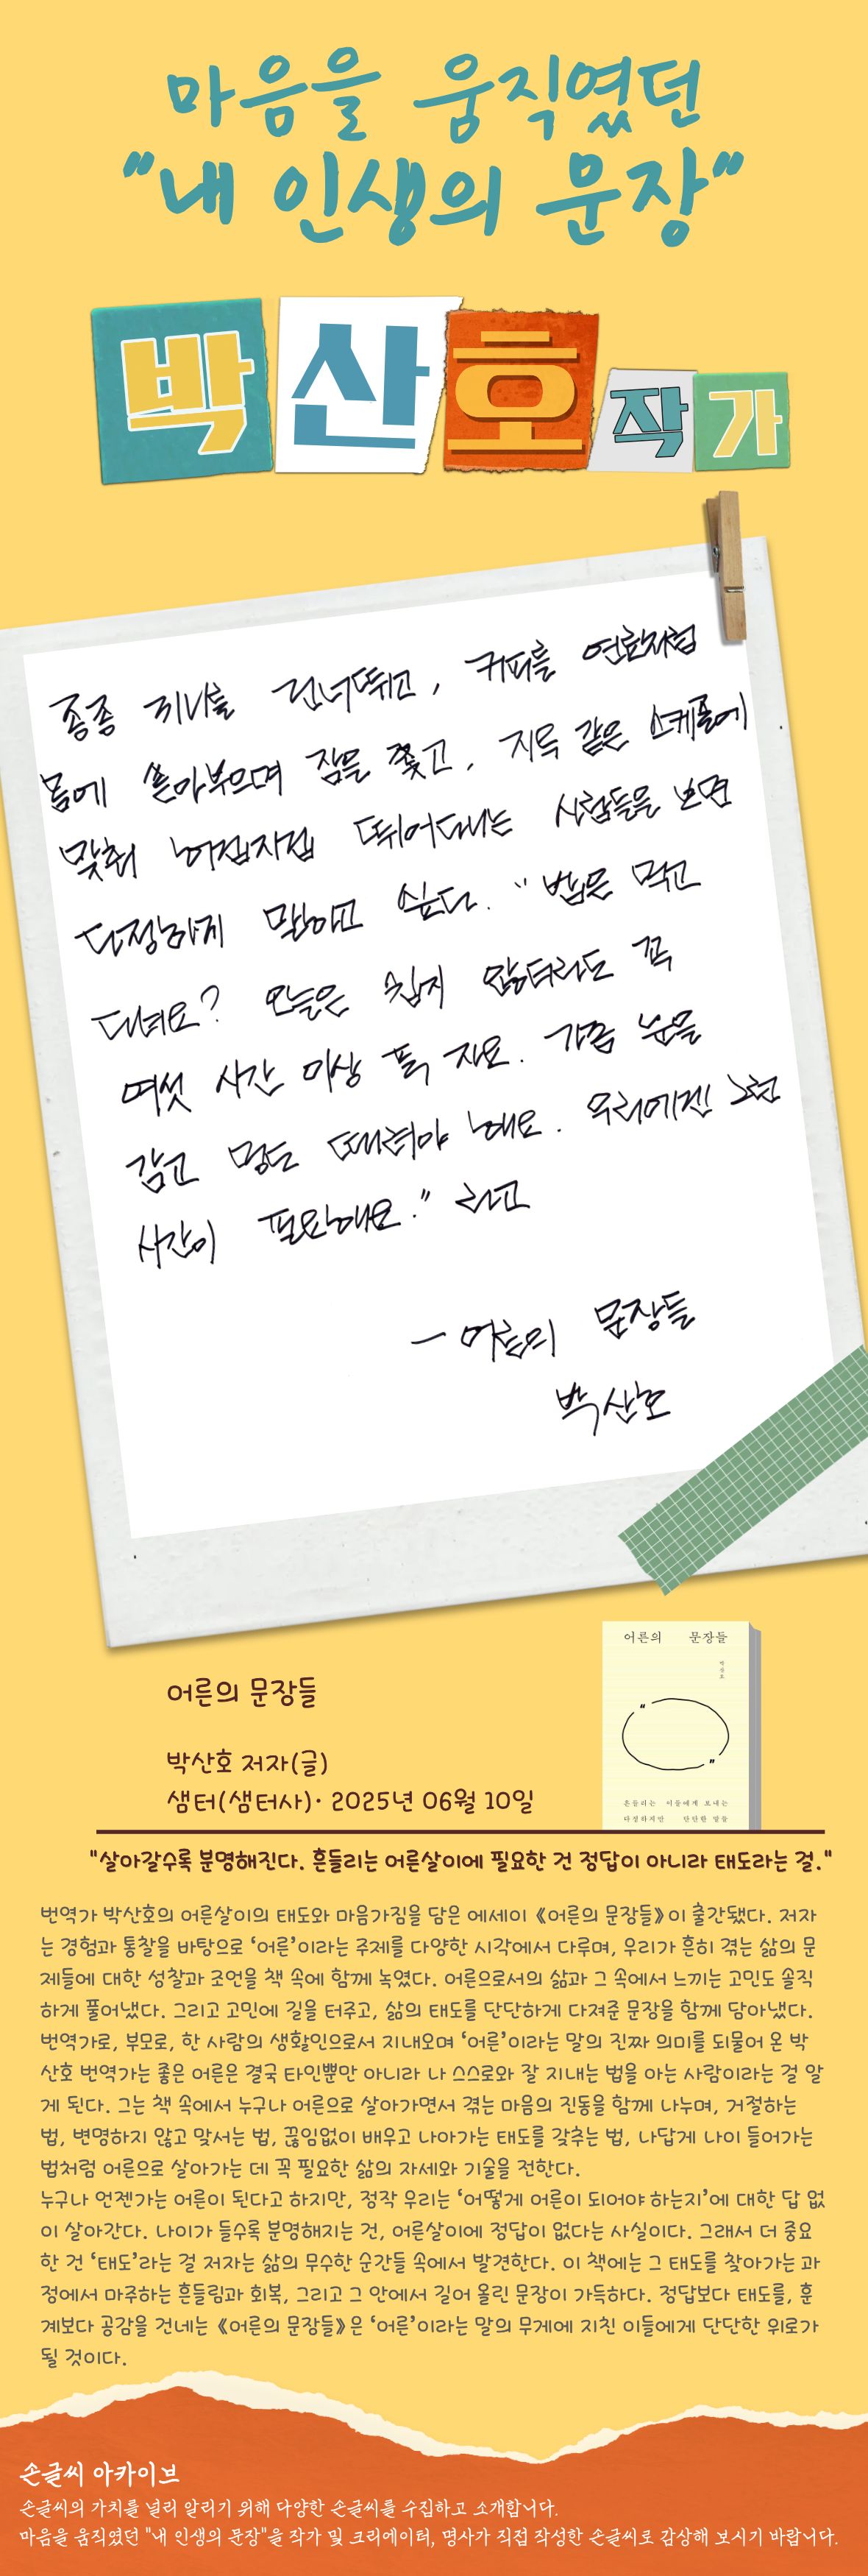 마음을 움직였던
"내 인생의 문장"
박산호작가
종종 끼니를 건너뛰고, 커피를 연료처럼
몸에 쏟아부으며 잠을 쫓고, 지옥 같은 스케줄에
맞춰 허겁지겁 뛰어다니는 사람들을 보면
다정하게 말하고 싶다. "밥은 먹고
다녀요? 오늘은 쉽지 않더라도 꼭
여섯 시간 이상 푹 자요. 가끔 눈을
감고 멍도 때려야 해요. 우리에겐 그런
시간이 필요해요." 라고
- 어른의 문장들
박산호
어른의 문장들
박산호
“
”
흔들리는 이들에게 보내는
다정하지만 단단한 말들
어른의 문장들
박산호 저자(글)
샘터(샘터사)· 2025년 06월 10일
"살아갈수록 분명해진다. 흔들리는 어른살이에 필요한 건 정답이 아니라 태도라는 걸."
번역가 박산호의 어른살이의 태도와 마음가짐을 담은 에세이 《어른의 문장들》이 출간됐다. 저자
는 경험과 통찰을 바탕으로 ‘어른’이라는 주제를 다양한 시각에서 다루며, 우리가 흔히 겪는 삶의 문
제들에 대한 성찰과 조언을 책 속에 함께 녹였다. 어른으로서의 삶과 그 속에서 느끼는 고민도 솔직
하게 풀어냈다. 그리고 고민에 길을 터주고, 삶의 태도를 단단하게 다져준 문장을 함께 담아냈다.
번역가로, 부모로, 한 사람의 생활인으로서 지내오며 ‘어른’이라는 말의 진짜 의미를 되물어 온 박
산호 번역가는 좋은 어른은 결국 타인뿐만 아니라 나 스스로와 잘 지내는 법을 아는 사람이라는 걸 알
게 된다. 그는 책 속에서 누구나 어른으로 살아가면서 겪는 마음의 진동을 함께 나누며, 거절하는
법, 변명하지 않고 맞서는 법, 끊임없이 배우고 나아가는 태도를 갖추는 법, 나답게 나이 들어가는
법처럼 어른으로 살아가는 데 꼭 필요한 삶의 자세와 기술을 전한다.
누구나 언젠가는 어른이 된다고 하지만, 정작 우리는 ‘어떻게 어른이 되어야 하는지’에 대한 답 없
이 살아간다. 나이가 들수록 분명해지는 건, 어른살이에 정답이 없다는 사실이다. 그래서 더 중요
한 건 ‘태도’라는 걸 저자는 삶의 무수한 순간들 속에서 발견한다. 이 책에는 그 태도를 찾아가는 과
정에서 마주하는 흔들림과 회복, 그리고 그 안에서 길어 올린 문장이 가득하다. 정답보다 태도를, 훈
계보다 공감을 건네는 《어른의 문장들》은 ‘어른’이라는 말의 무게에 지친 이들에게 단단한 위로가
될 것이다.
손글씨 아카이브
손글씨의 가치를 널리 알리기 위해 다양한 손글씨를 수집하고 소개합니다.
마음을 움직였던 "내 인생의 문장"을 작가 및 크리에이터, 명사가 직접 작성한 손글씨로 감상해 보시기 바랍니다.